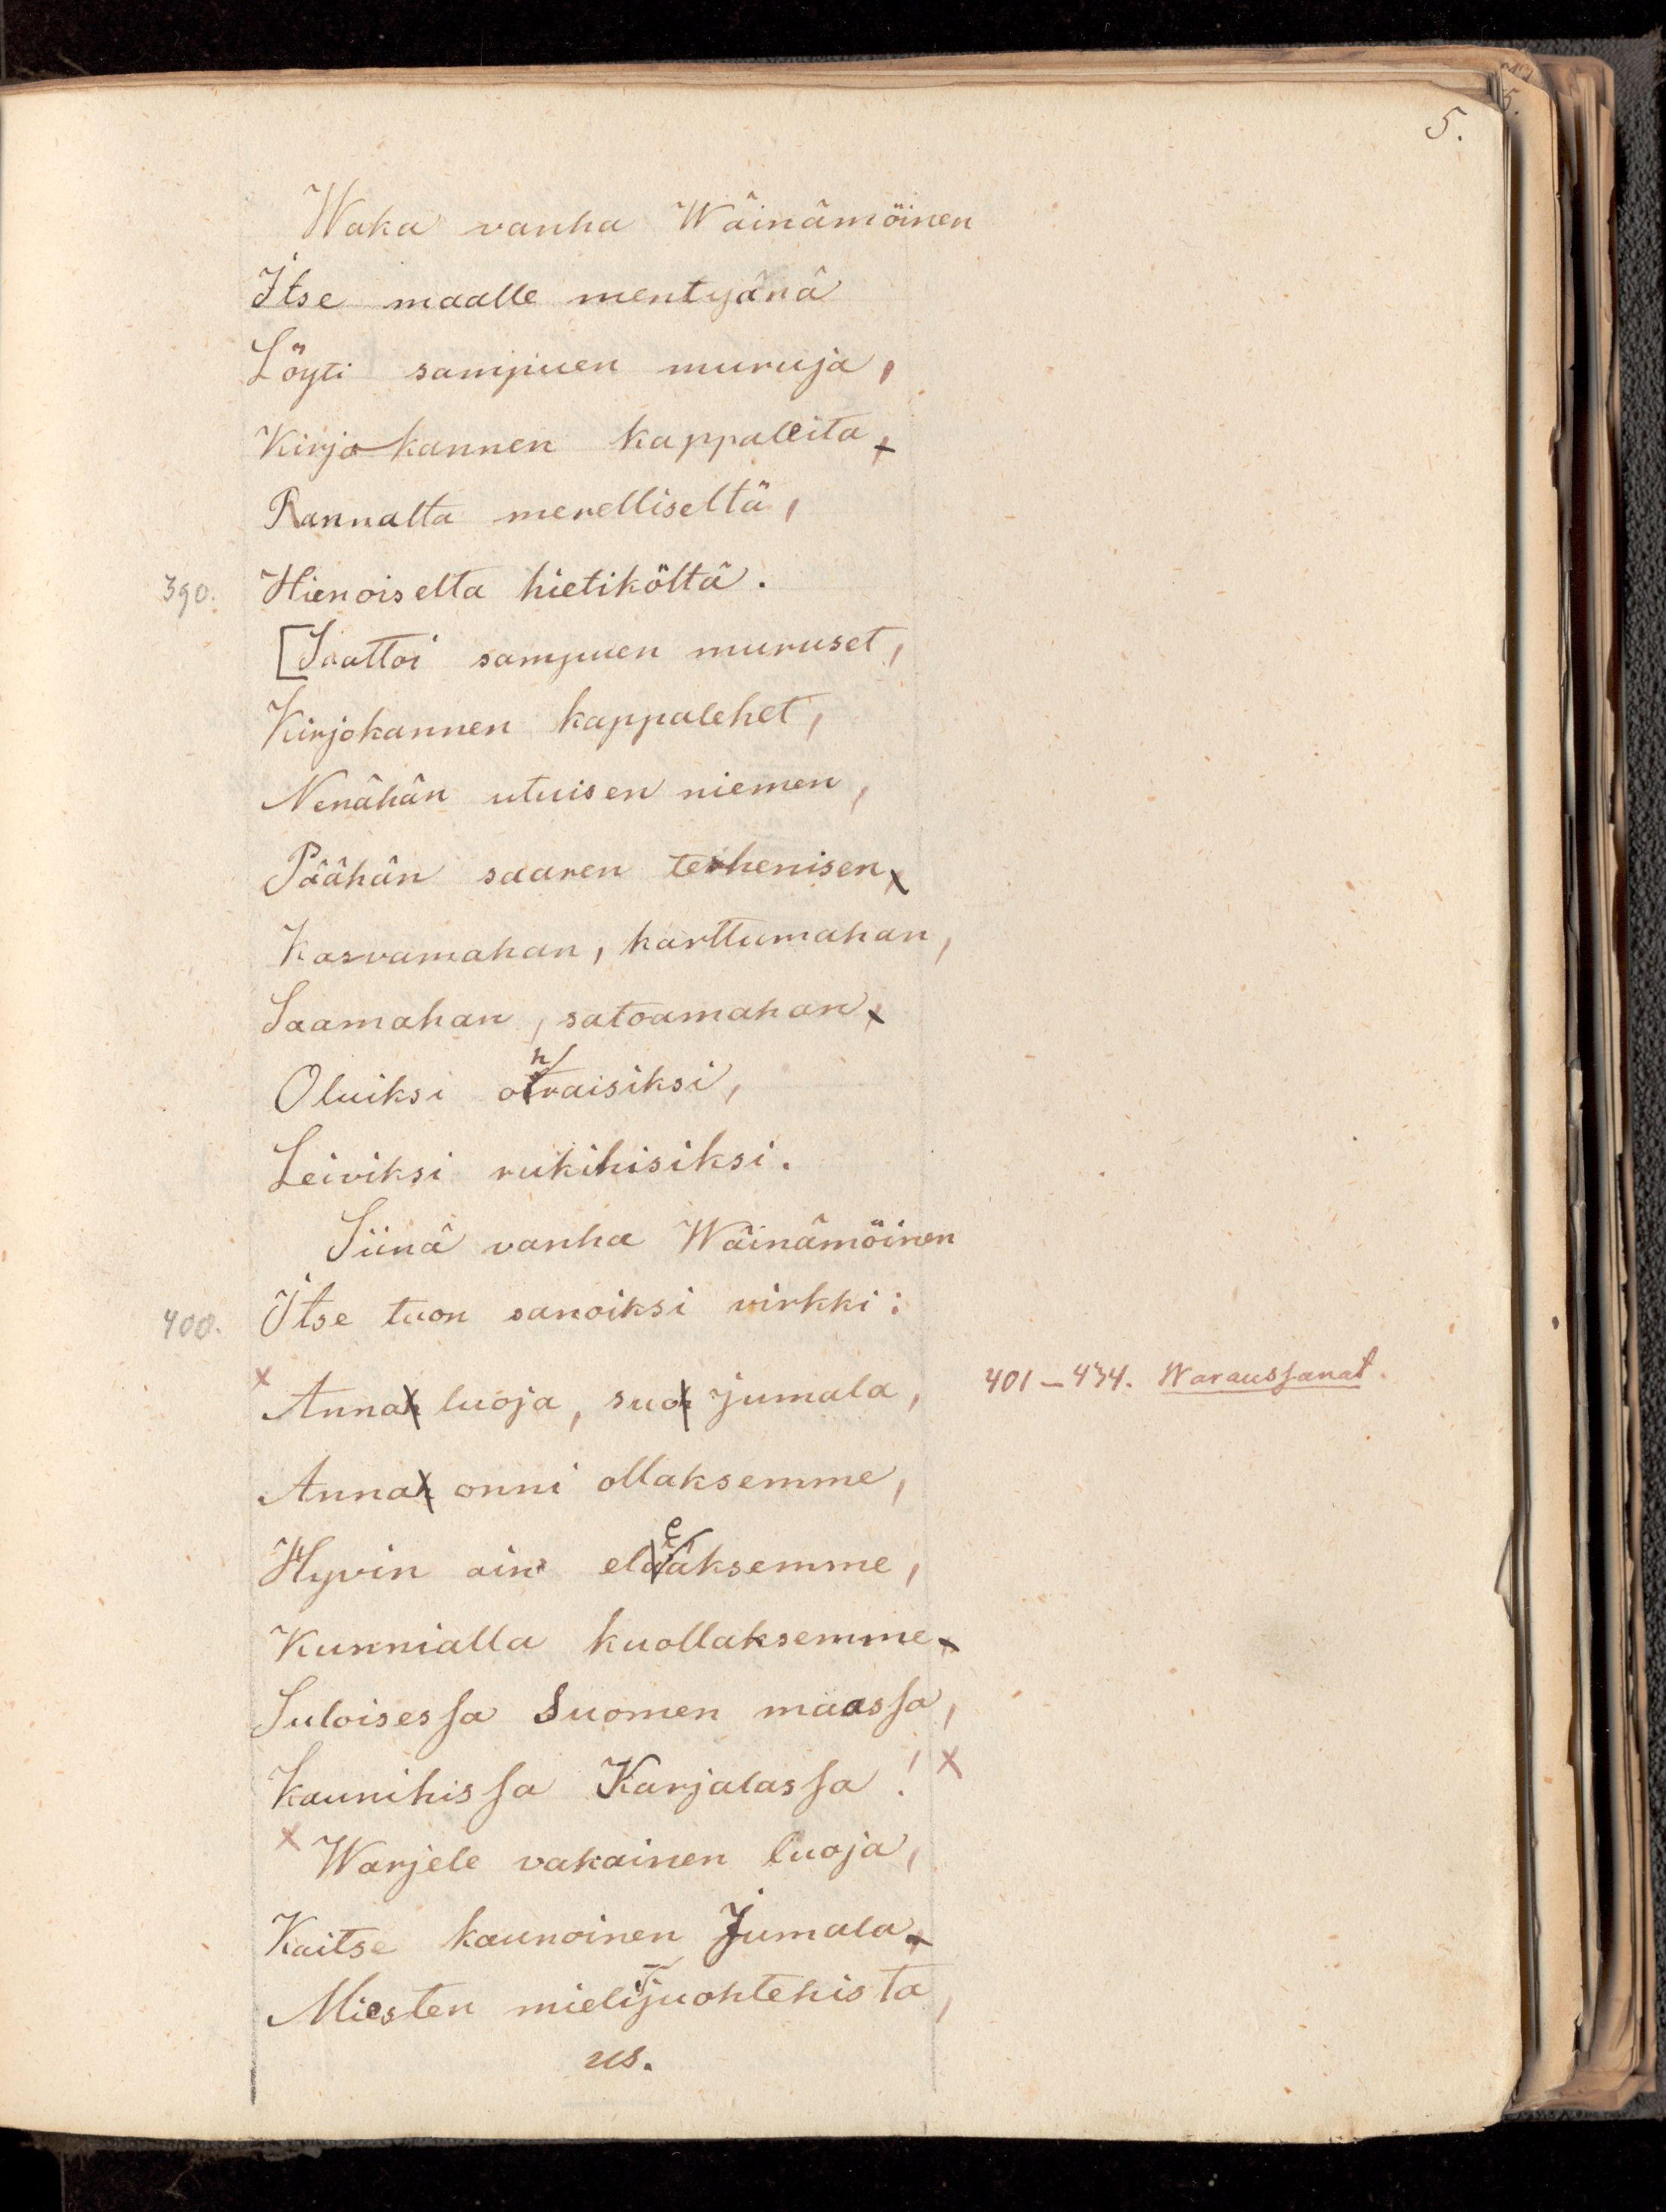 5.
Waka vanha Wäinämöinen
Itse maalle mentyänä
Löyti sampuen muruja,
Kirjokannen kappaleita
Rannalta merelliseltä,
390. Hienoiselta hietiköltä.
[Saattoi sampuen muruset,
Kirjokannen kappalehet,
Nenähän utuisen niemen,
Päähän saaren terhenisen
Kasvamahan, karttumahan,
Saamahan, satoamahan
Oluiksi ohraisiksi,
Leiviksi rukihisiksi.
Siinä vanha Wäinämöinen
400. Itse tuon sanoiksi virkki:
x Anna luoja, suo Jumala, 401–434. Waraussanat.
Anna onni ollaksemme,
Hyvin ain eleäksemme,
Kunnialla kuollaksemme
Suloisessa Suomen maassa,
Kaunihissa Karjalassa! x
x Warjele vakainen luoja,
Kaitse kaunoinen Jumala
Miesten mielijuohtehista,
us.